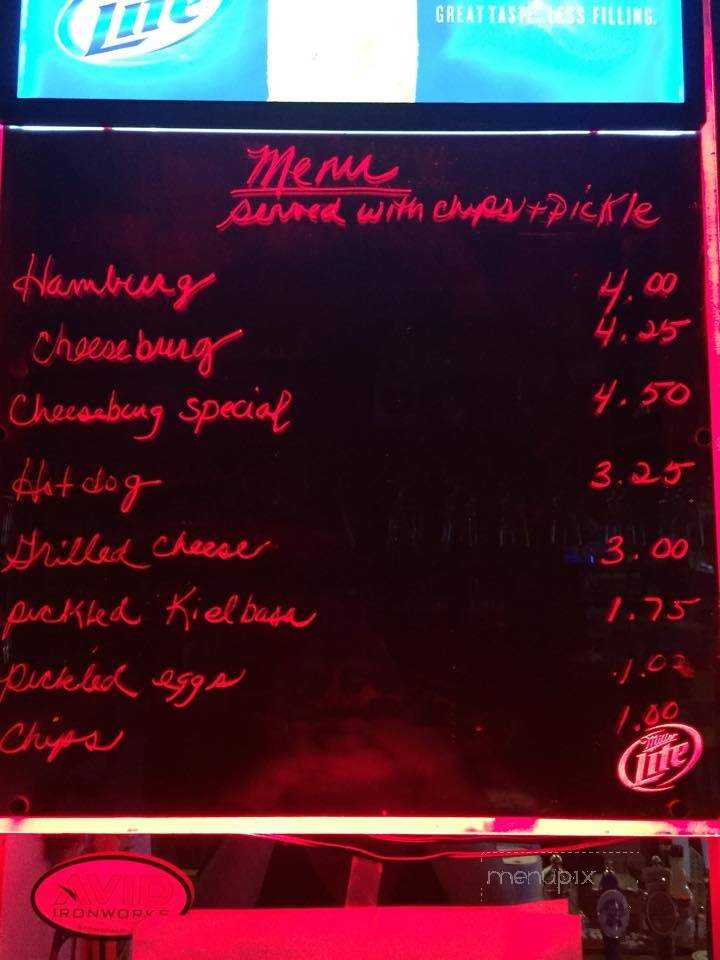 Lite
GREAT TASTE LESS FILLING.
Menu
served with chips + pickle
Hamburg 4.00
Cheeseburg 4.25
Cheeseburg special 4.50
Hot dog 3.25
Grilled cheese 3.00
pickled Kielbasa 1.75
pickled eggs
Chips 1.00
Miller
Lite
AVID
IRONWORKS
menupix